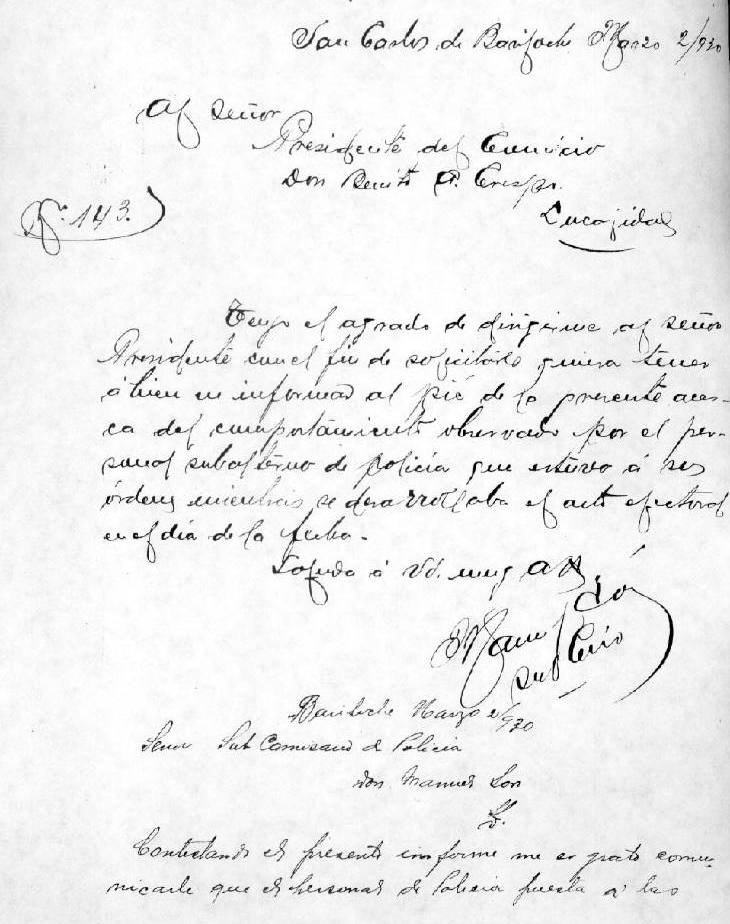 San Carlos de Bariloche Marzo 2/930
Al señor
Presidente del Comicio
Don Benito A. Crespo.
Nº. 143.
Lucajidad
Tengo el agrado de dirigirme al señor
Presidente con el fin de solicitarle quiera tener
á bien en informar al pié de la presente acer-
ca del comportamiento observado por el per-
sonal subalterno de policía que estuvo á sus
órdenes mientras se desarrollaba el acto electoral
en el día de la fecha.
Saluda á Vd. muy
Manuel
Sub Crio
Bariloche Marzo 2/930
Señor Sub Comisario de Policia
don Manuel
S/d.
Contestando el presente informe me es grato comu-
nicarle que el personal de Policia puesta á las